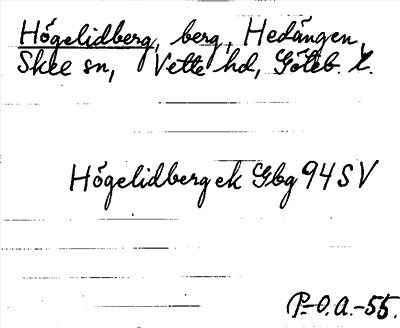 Högelidberg, berg, Hedängen,
Skee sn, Vette hd, Göteb. l.
Högelidberg ek Gbg 94 SV
P.-O.A.-55.